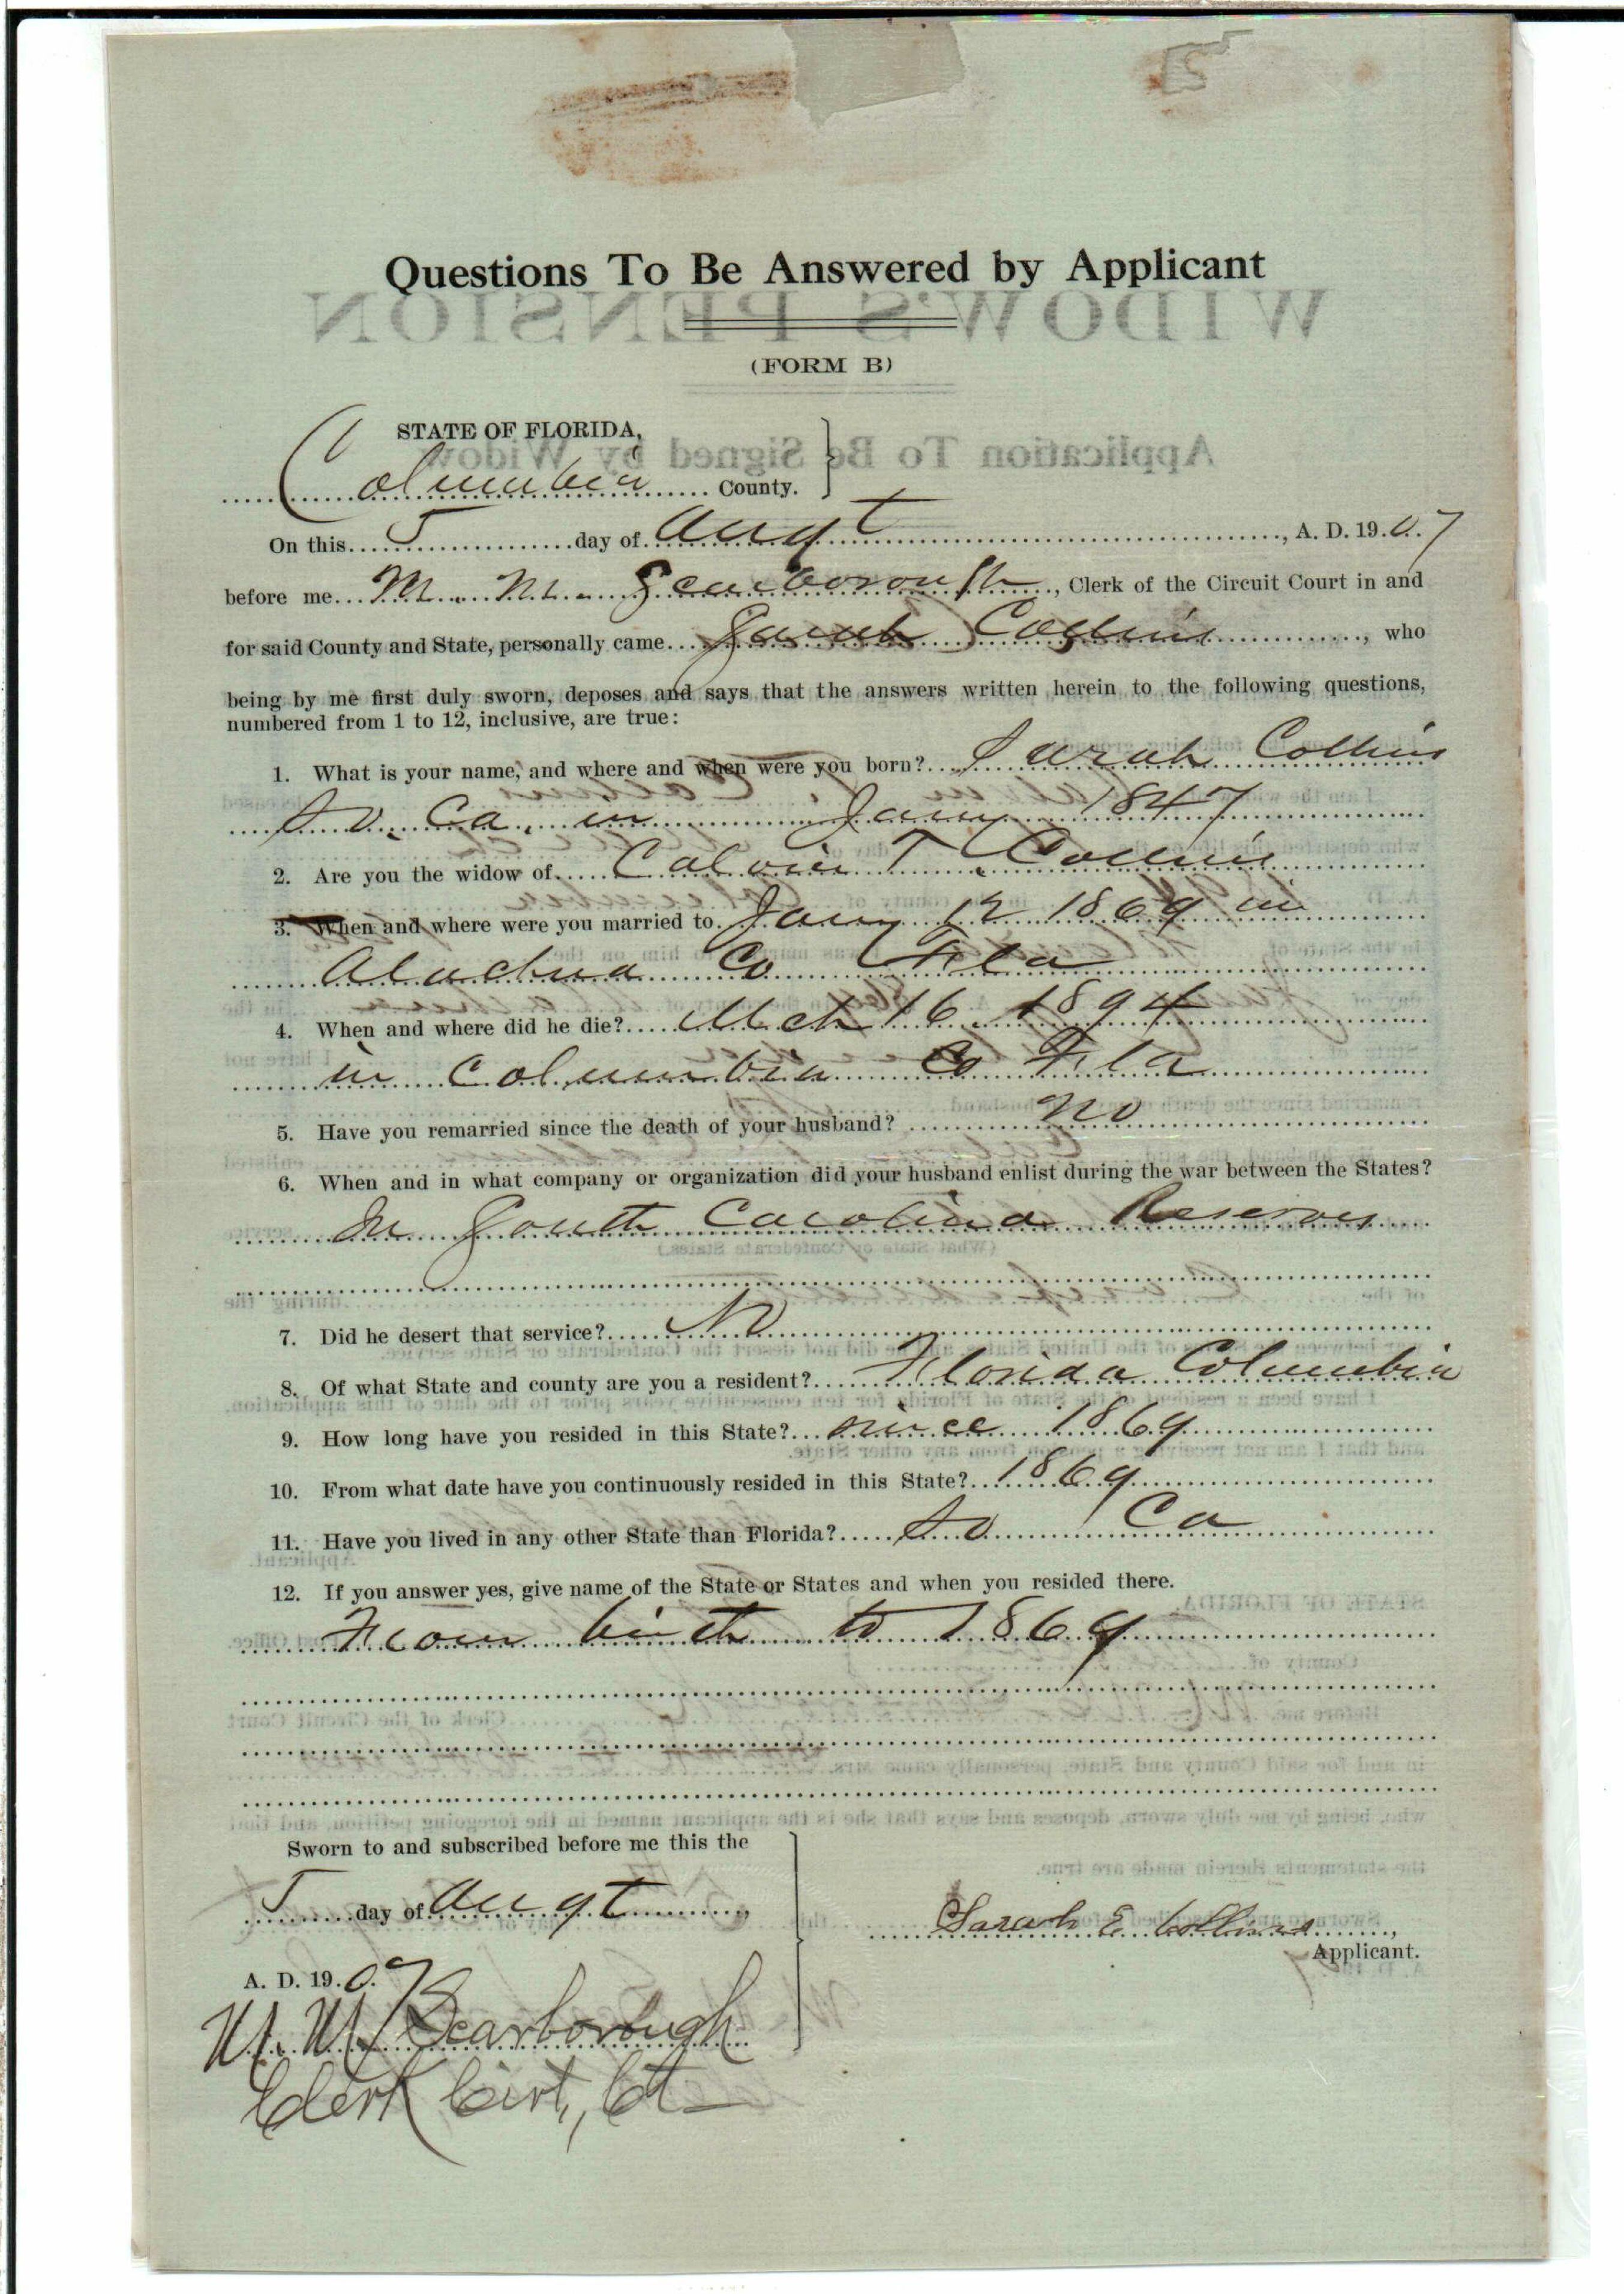 Questions To Be Answered by Applicant
WIDOW'S PENSION
(FORM B)
STATE OF FLORIDA,
Application To Be Signed by Widow
Columbia County.
On this 5 day of Augt, A. D. 1907
before me M. M. Scarborough, Clerk of the Circuit Court in and
for said County and State, personally came Sarah Collins, who
being by me first duly sworn, deposes and says that the answers written herein to the following questions,
numbered from 1 to 12, inclusive, are true:
1. What is your name, and where and when were you born? Sarah Collins
So. Ca. in Jany 1847
2. Are you the widow of Calvin T. Collins
3. When and where were you married to Jany 12 1869 in
Alachua Co Fla
4. When and where did he die? Mch 16. 1894
in Columbia Co Fla
5. Have you remarried since the death of your husband? No
6. When and in what company or organization did your husband enlist during the war between the States?
In South Carolina Reserves
7. Did he desert that service? No
8. Of what State and county are you a resident? Florida Columbia
9. How long have you resided in this State? since 1869
10. From what date have you continuously resided in this State? 1869
11. Have you lived in any other State than Florida? So Ca
12. If you answer yes, give name of the State or States and when you resided there.
From birth to 1869
Sworn to and subscribed before me this the
5 day of Augt
Sarah E Collins,
Applicant.
A. D. 1907
M. M. Scarborough
Clerk Cirt, Ct